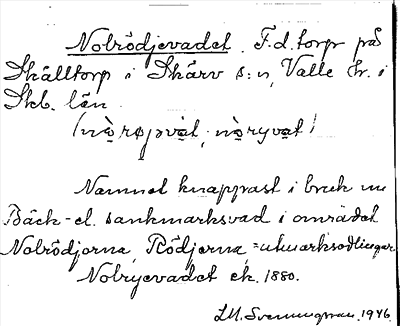 Nolrödjevadet. F.d. torp på
Skälltorp i Skärv s:n, Valle hr. i
Skb. län.
(nọ̀røjvạt, nọ̀ryvạt)
Namnet knappast i bruk nu
Bäck- el. sankmarksvad i området
Nolrödjorna, Rödjorna, =utmarksodlingar
Nolryevadet ek. 1880.
LM. Svenungsson. 1946